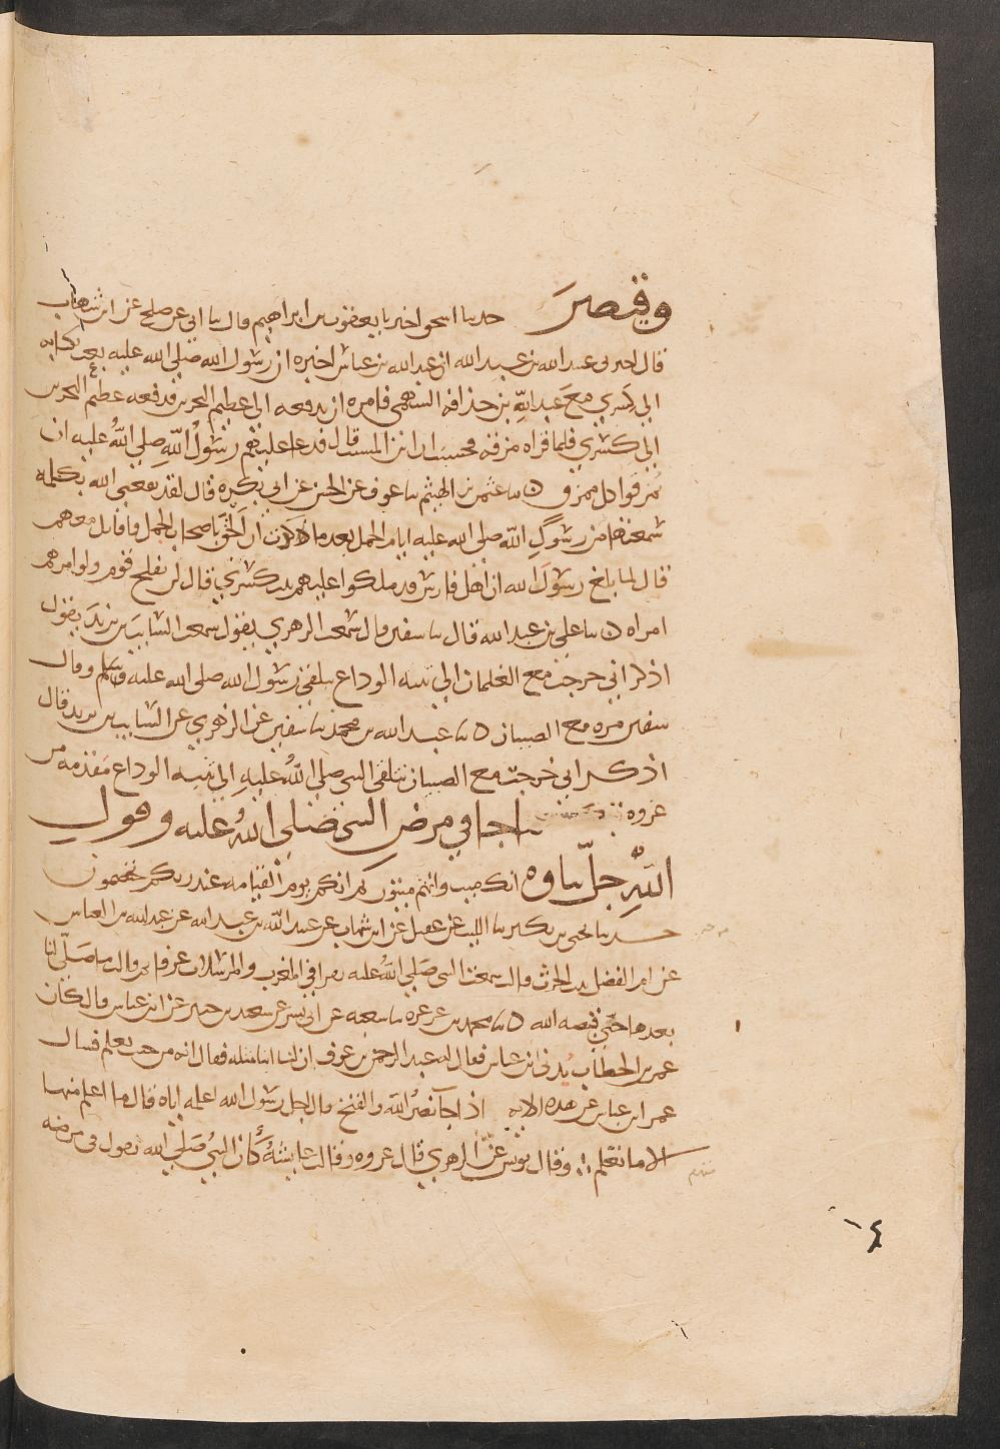 وقيصر حدثنا اسحق اخبرنا يعقوب بن ابراهيم قال نا ابي عن صلح عن ابن شهاب
قال اخبرني عبد الله بن عبيد الله ان عبد الله بن عباس اخبره ان رسول الله صلى الله عليه بعث بكتابه
الى كسرى مع عبد الله بن حذافه السهمي فامره ان يدفعه الى عظيم البحرين فدفعه عظيم البحرين
الى كسرى فلما قراه مزقه فحسبت ان ابن المسيب قال فدعا عليهم رسول الله صلى الله عليه ان
يمزقوا كل ممزق ه نا عثمن بن الهيثم نا عوف عن الحسن عن ابي بكره قال لقد نفعني الله بكلمه
سمعتها من رسول الله صلى الله عليه ايام الجمل بعد ما كدت ان الحق باصحاب الجمل فاقاتل معهم
قال لما بلغ رسول الله ان اهل فارس قد ملكوا عليهم بنت كسرى قال لن يفلح قوم ولوا امرهم
امراه ه نا علي بن عبد الله قال نا سفين قال سمعت الزهري يقول سمعت السايب بن يزيد يقول
اذكر اني خرجت مع الغلمان الى ثنيه الوداع نتلقى رسول الله صلى الله عليه وسلم وقال
سفين مره مع الصبيان ه نا عبد الله بن محمد نا سفين عن الزهري عن السايب بن يزيد قال
اذكر اني خرجت مع الصبيان نتلقى النبي صلى الله عليه الى ثنيه الوداع مقدمه من
غزوه تبوك باب ما جا في مرض النبي صلى الله عليه وقول
الله جل ثناوه انك ميت وانهم ميتون ثم انكم يوم القيامه عند ربكم تختصمون
حدثنا يحيى بن بكير نا الليث عن عقيل عن ابن شهاب عن عبيد الله بن عبد الله عن عبد الله بن العباس
عن ام الفضل بنت الحرث قالت سمعت النبي صلى الله عليه يقرا في المغرب والمرسلات عرفا ثم قالت ما صلى لنا
بعدها حتى قبضه الله ه نا محمد بن عرعره نا شعبه عن ابي بشر عن سعيد بن جبير عن ابن عباس قال كان
عمر بن الخطاب يدني ابن عباس فقال له عبد الرحمن بن عوف ان لنا ابنا مثله فقال انه من حيث تعلم فسال
عمر ابن عباس عن هذه الايه اذا جا نصر الله والفتح قال اجل رسول الله اعلمه اياه قال ما اعلم منها
الا ما تعلم وقال يونس عن الزهري قال عروه وقالت عايشه كان النبي صلى الله يقول في مرضه